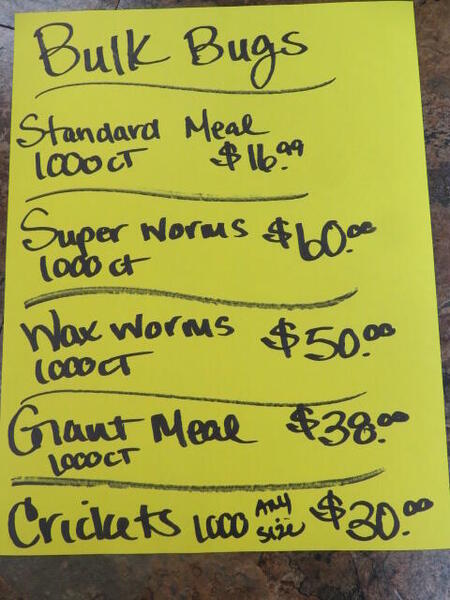 Bulk Bugs
Standard Meal
1000 CT $16.99
Super Worms $60.00
1000 ct
Wax Worms $50.00
1000 CT
Giant Meal $38.00
1000 CT
Crickets 1000 ANY SIZE $30.00